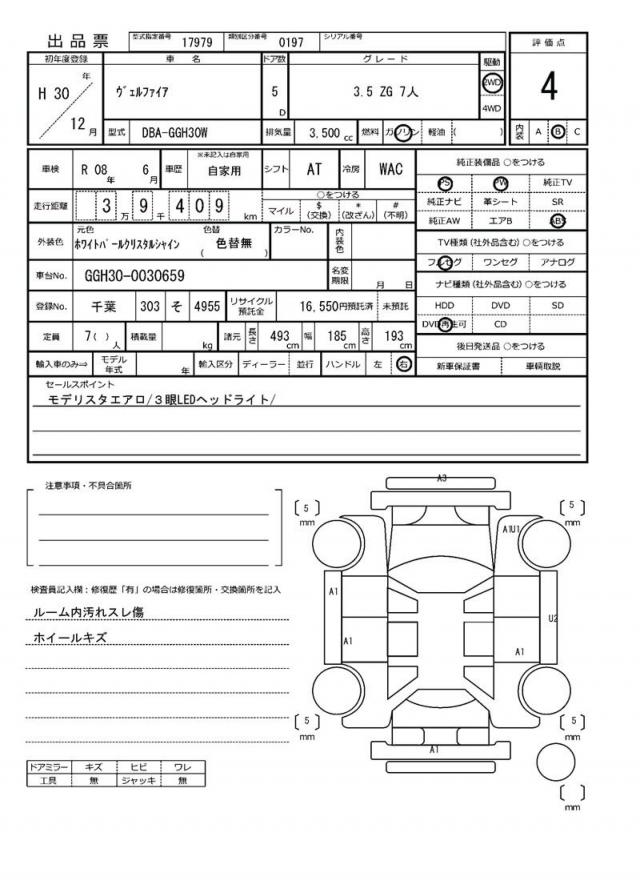 出品票 型式指定番号 17979 類別区分番号 0197 シリアル番号
評価点
4
内装 A B C
初年度登録 車名 ドア数 グレード 駆動
H 30 年 12 月 ヴェルファイア 5 D 3.5 ZG 7人 2WD 4WD
型式 DBA-GGH30W 排気量 3,500 cc 燃料 ガソリン 軽油 ( )
車検 R 08 年 6 月 車歴 ※未記入は自家用 自家用 シフト AT 冷房 WAC
走行距離 3 万 9 千 4 0 9 km ○をつける
マイル $(交換) *(改ざん) #(不明)
外装色 元色 ホワイトパールクリスタルシャイン 色替 ( 色替無 ) カラーNo. 内装色
車台No. GGH30-0030659 名変期限 月 日
登録No. 千葉 303 そ 4955 リサイクル預託金 16,550円預託済 未預託
定員 7( ) 人 積載量 kg 諸元 長さ 493 cm 幅 185 cm 高さ 193 cm
輸入車のみ⇒ モデル年式 年 輸入区分 ディーラー 並行 ハンドル 左 右
純正装備品 ○をつける
PS PW 純正TV
純正ナビ 革シート SR
純正AW エアB ABS
TV種類(社外品含む)○をつける
フルセグ ワンセグ アナログ
ナビ種類(社外品含む)○をつける
HDD DVD SD
DVD再生可 CD
後日発送品 ○をつける
新車保証書 車輌取説
セールスポイント
モデリスタエアロ/3眼LEDヘッドライト/
注意事項・不具合箇所
検査員記入欄:修復歴「有」の場合は修復箇所・交換箇所を記入
ルーム内汚れスレ傷
ホイールキズ
ドアミラー キズ ヒビ ワレ
工具 無 ジャッキ 無
A3
5 mm
5 mm
A1U1
A1
U2
A1
A1
5 mm
5 mm
A1
mm